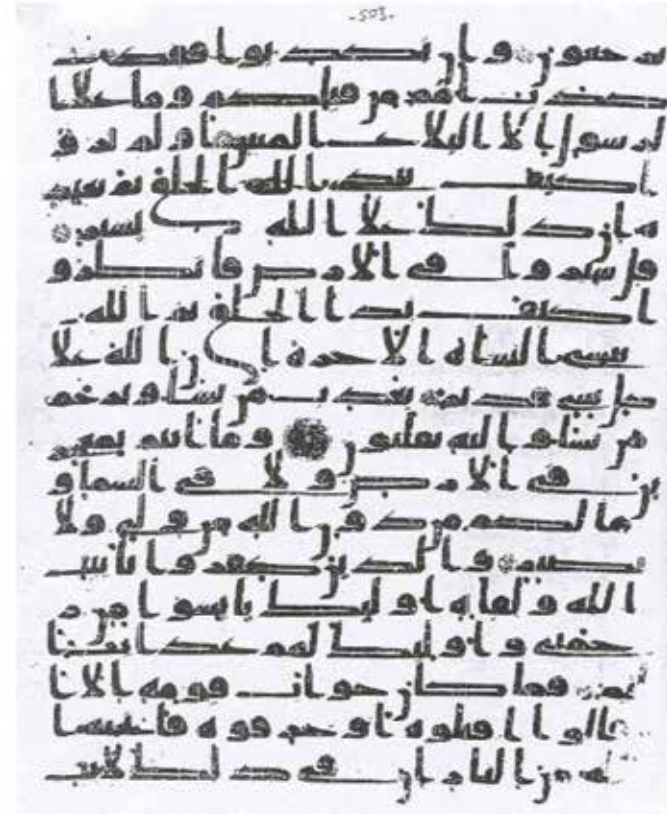 -503-
ترجعون وان تكذبوا فقد
كذبت امم من قبلكم وما علا ا
لرسول الا البلاغ المبين اولم يرو
ا كيف يبدي الله الخلق ثم يعيد
ه ان ذلك علا الله يسير
قل سيروا في الارض فانظرو
ا كيف بدا الخلق ثم الله
ينشي النشاه الاخره ان الله علا
كل شي قدير يعذب من يشا ويرحم
من يشا واليه تقلبون وما انتم بمعجز
ين في الارض ولا في السما و
ما لكم من دون الله من ولي ولا
نصير والذين كفروا بايت
الله ولقايه اوليك ييسوا من ر
حمتي واوليك لهم عذاب ا
ليم فما كان جواب قومه الا ا
ن قالوا اقتلوه او حرقوه فانجيه ا
لله من النار ان في ذلك لايت